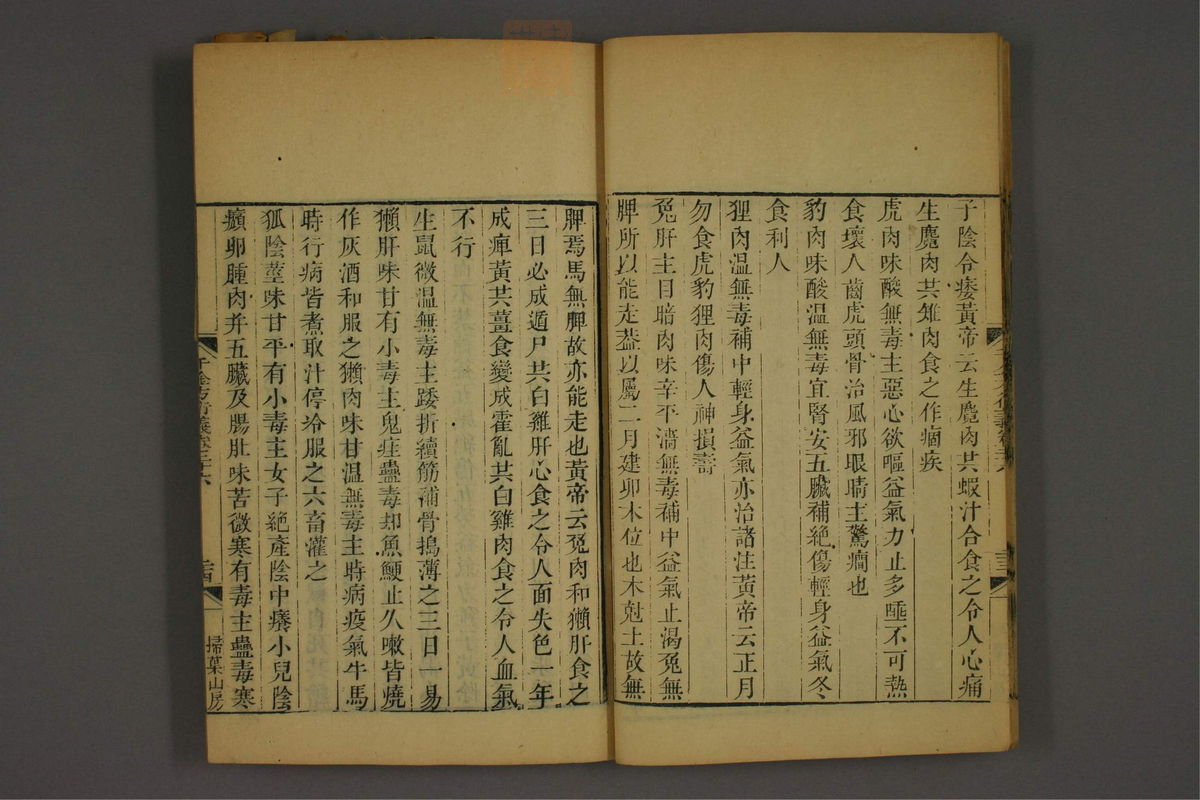 子陰令痿黃帝云生麞肉共蝦汁合食之令人心痛
生麞肉共雉肉食之作痼疾
虎肉味酸無毒主惡心欲嘔益氣力止多唾不可熱
食壞人齒虎頭骨治風邪眼睛主驚癎也
豹肉味酸溫無毒宜腎安五臟補絕傷輕身益氣冬
食利人
狸肉溫無毒補中輕身益氣亦治諸注黃帝云正月
勿食虎豹狸肉傷人神損壽
兔肝主目暗肉味辛平濇無毒補中益氣止渴兔無
脾所以能走葢以屬二月建卯木位也木尅土故無
脾焉馬無脾故亦能走也黃帝云兔肉和獺肝食之
三日必成遁尸共白雞肝心食之令人面失色一年
成癉黃共薑食變成霍亂共白雞肉食之令人血氣
不行
生鼠微溫無毒主踒折續筋補骨搗薄之三日一易
獺肝味甘有小毒主鬼疰蠱毒却魚鯁止久嗽皆燒
作灰酒和服之獺肉味甘溫無毒主時病疫氣牛馬
時行病皆煮取汁停冷服之六畜灌之
狐陰莖味甘平有小毒主女子絕產陰中癢小兒陰
㿗卵腫肉并五臟及腸肚味苦微寒有毒主蠱毒寒
千金方衍義卷二十六
三十四
掃葉山房